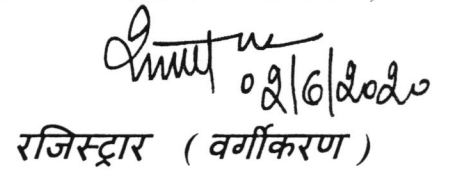 02/6/2020
रजिस्ट्रार ( वर्गीकरण )